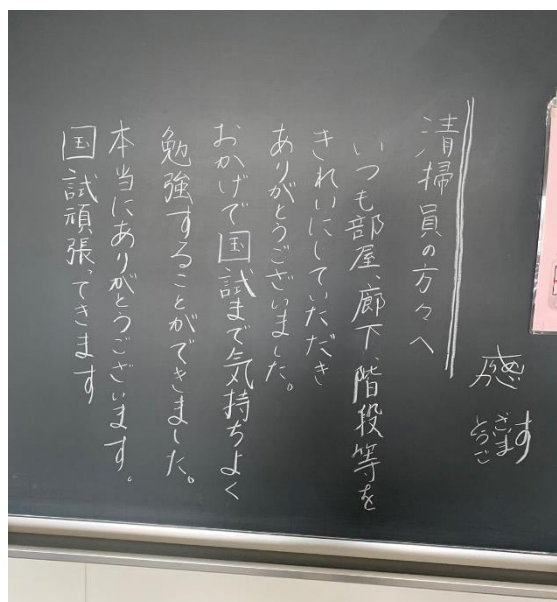 清掃員の方々へ
いつも部屋、廊下、階段等を
きれいにしていただき
ありがとうございました。
おかげで国試まで気持ちよく
勉強することができました。
本当にありがとうございます。
国試頑張ってきます